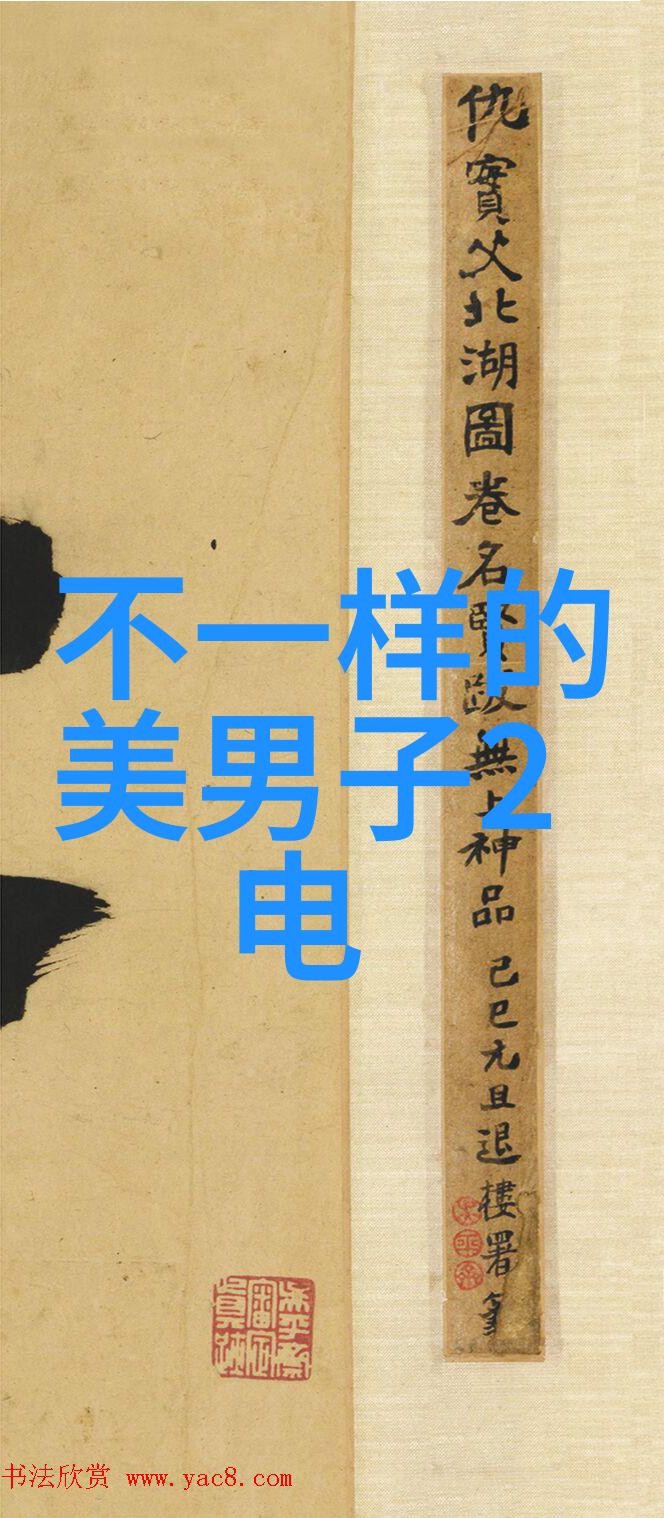 仇實父北湖圖卷名賢跋無上神品
己巳元旦退樓署
不一样的
美男子2
电
书法欣赏 www.yac8.com